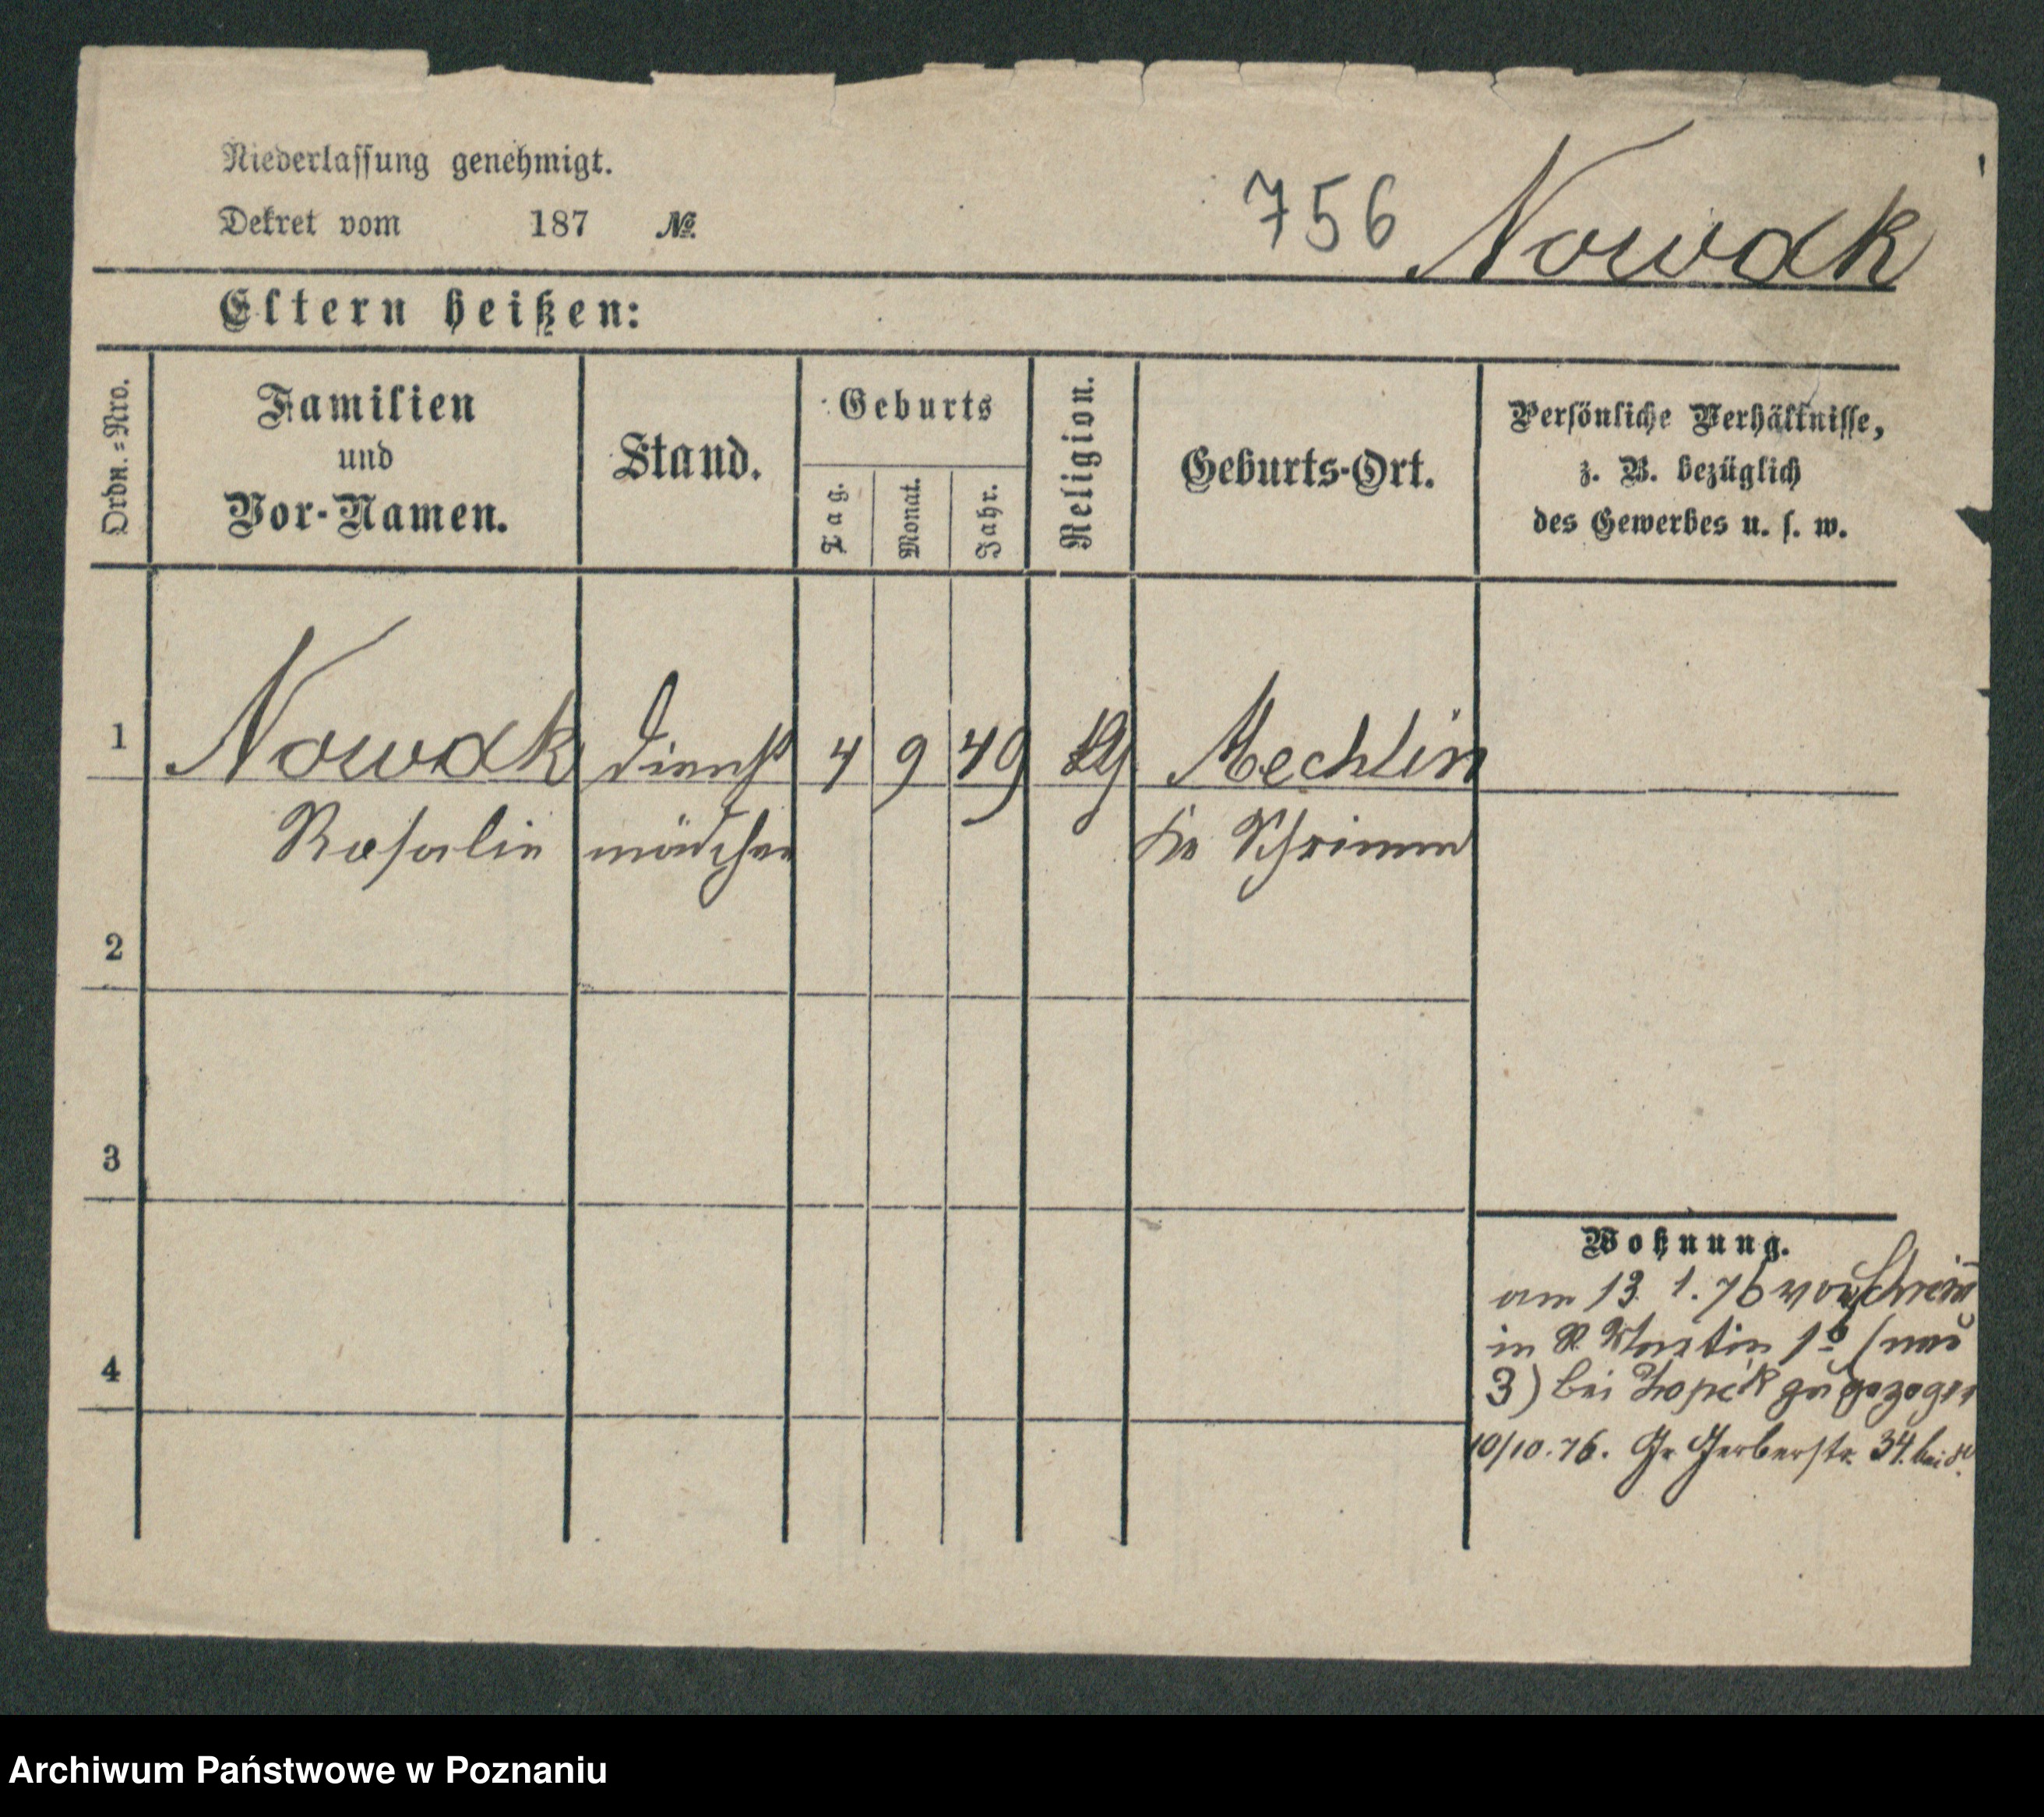 Niederlassung genehmigt.
Dekret vom 187 №
756 Nowak
Eltern heißen:
Ordn.=Nro.
Familien
und
Vor-Namen.
Stand.
Geburts
Tag.
Monat.
Jahr.
Religion.
Geburts-Ort.
Persönliche Verhältnisse,
z. B. bezüglich
des Gewerbes u. s. w.
1 Nowak Dienst 4 9 49 Mechlin
Rosalie mädchen Kr Schrimm
2
3
4
Wohnung.
am 13. 1. 76 von Schrim
in S. Martin (neu
3) bei zugezogen
10/10.76. Gr Gerberstr. 34. bei
Archiwum Państwowe w Poznaniu